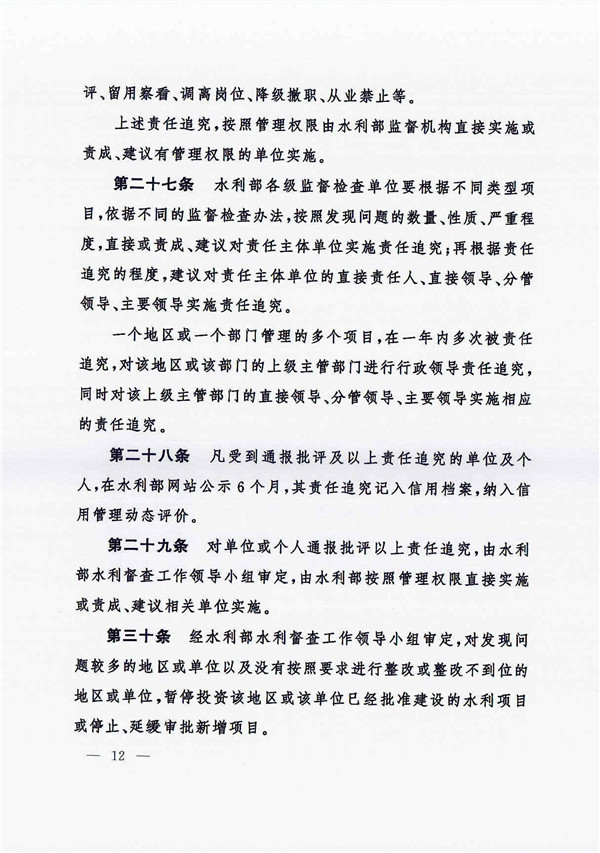 评、留用察看、调离岗位、降级撤职、从业禁止等。
上述责任追究，按照管理权限由水利部监督机构直接实施或
责成、建议有管理权限的单位实施。
第二十七条　水利部各级监督检查单位要根据不同类型项
目，依据不同的监督检查办法，按照发现问题的数量、性质、严重程
度，直接或责成、建议对责任主体单位实施责任追究；再根据责任
追究的程度，建议对责任主体单位的直接责任人、直接领导、分管
领导、主要领导实施责任追究。
一个地区或一个部门管理的多个项目，在一年内多次被责任
追究，对该地区或该部门的上级主管部门进行行政领导责任追究，
同时对该上级主管部门的直接领导、分管领导、主要领导实施相应
的责任追究。
第二十八条　凡受到通报批评及以上责任追究的单位及个
人，在水利部网站公示 6 个月，其责任追究记入信用档案，纳入信
用管理动态评价。
第二十九条　对单位或个人通报批评以上责任追究，由水利
部水利督查工作领导小组审定，由水利部按照管理权限直接实施
或责成、建议相关单位实施。
第三十条　经水利部水利督查工作领导小组审定，对发现问
题较多的地区或单位以及没有按照要求进行整改或整改不到位的
地区或单位，暂停投资该地区或该单位已经批准建设的水利项目
或停止、延缓审批新增项目。
— 12 —